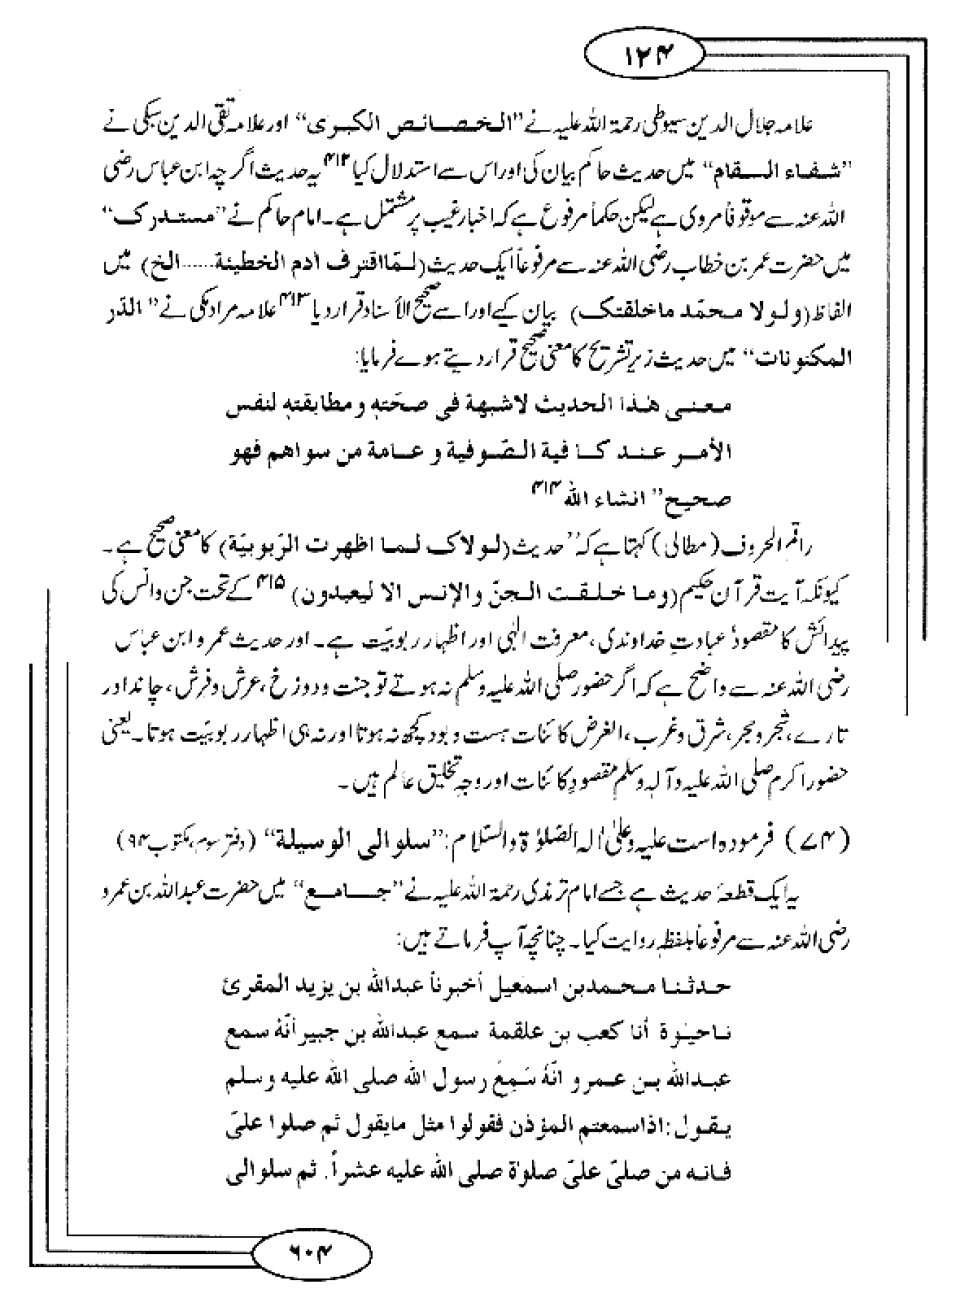 ۱۲۴
علامہ جلال الدین سیوطی رحمۃ اللہ علیہ نے "الخصائص الکبری" اور علامہ تقی الدین سبکی نے
"شفاء السقام" میں حدیث حاکم بیان کی اور اس سے استدلال کیا ۴۱۲ یہ حدیث اگرچہ ابن عباس رضی
اللہ عنہ سے موقوفاً مروی ہے لیکن حکماً مرفوع ہے کہ اخبار غیب پر مشتمل ہے۔ امام حاکم نے "مستدرک"
میں حضرت عمر بن خطاب رضی اللہ عنہ سے مرفوعاً ایک حدیث (لمّا اقترف أدم الخطیئة ..... الخ) میں
الفاظ (ولولا محمّد ماخلقتک) بیان کیے اور اسے صحیح الأسناد قرار دیا ۴۱۳ علامہ مراد مکی نے "الدّر
المکنونات" میں حدیث زیر تشریح کا معنی صحیح قرار دیتے ہوے فرمایا:
معنی هذا الحدیث لاشبهة فی صحّتهٖ و مطابقتهٖ لنفس
الأمر عند کافیة الصّوفیة و عامة من سواهم فهو
صحیح" انشاء الله ۴۱۴
راقم الحروف (مطالی) کہتا ہے کہ "حدیث (لولاک لما اظهرت الرّبوبیّة) کا معنی صحیح ہے۔
کیونکہ آیت قرآن حکیم (وما خلقت الجنّ والإنس الا لیعبدون) ۴۱۵ کے تحت جن وانس کی
پیدائش کا مقصود عبادتِ خداوندی، معرفت الٰہی اور اظہار ربوبیّت ہے۔ اور حدیث عمر و ابن عباس
رضی اللہ عنہ سے واضح ہے کہ اگر حضور صلی اللہ علیہ وسلم نہ ہوتے تو جنت و دوزخ، عرش وفرش، چاند اور
تارے، شجر وحجر، شرق وغرب، الغرض کائنات ہست وبود کچھ نہ ہوتا اور نہ ہی اظہار ربوبیّت ہوتا۔ یعنی
حضور اکرم صلی اللہ علیہ وآلہ وسلم مقصودِ کائنات اور وجہ تخلیق عالم ہیں۔
(۷۴) فرمودہ است علیہ وعلیٰ اٰلہ الصّلوٰۃ والسّلام: "سلوا الی الوسیلة" (دفتر سوم، مکتوب ۹۴)
یہ ایک قطعۂ حدیث ہے جسے امام ترمذی رحمۃ اللہ علیہ نے "جامع" میں حضرت عبداللہ بن عمرو
رضی اللہ عنہ سے مرفوعاً بلفظہٖ روایت کیا۔ چنانچہ آپ فرماتے ہیں:
حدثنا محمدبن اسمعیل أخبرنا عبدالله بن یزید المقرئ
ناحیٰوة أنا کعب بن علقمة سمع عبدالله بن جبیر أنّهٗ سمع
عبدالله بن عمرو انّهٗ سَمِعَ رسول الله صلی الله علیه وسلم
یقول: اذاسمعتم المؤذن فقولوا مثل مایقول ثم صلوا علیّ
فانه من صلیّ علیّ صلوٰة صلی الله علیه عشراً. ثم سلوالی
۶۰۴